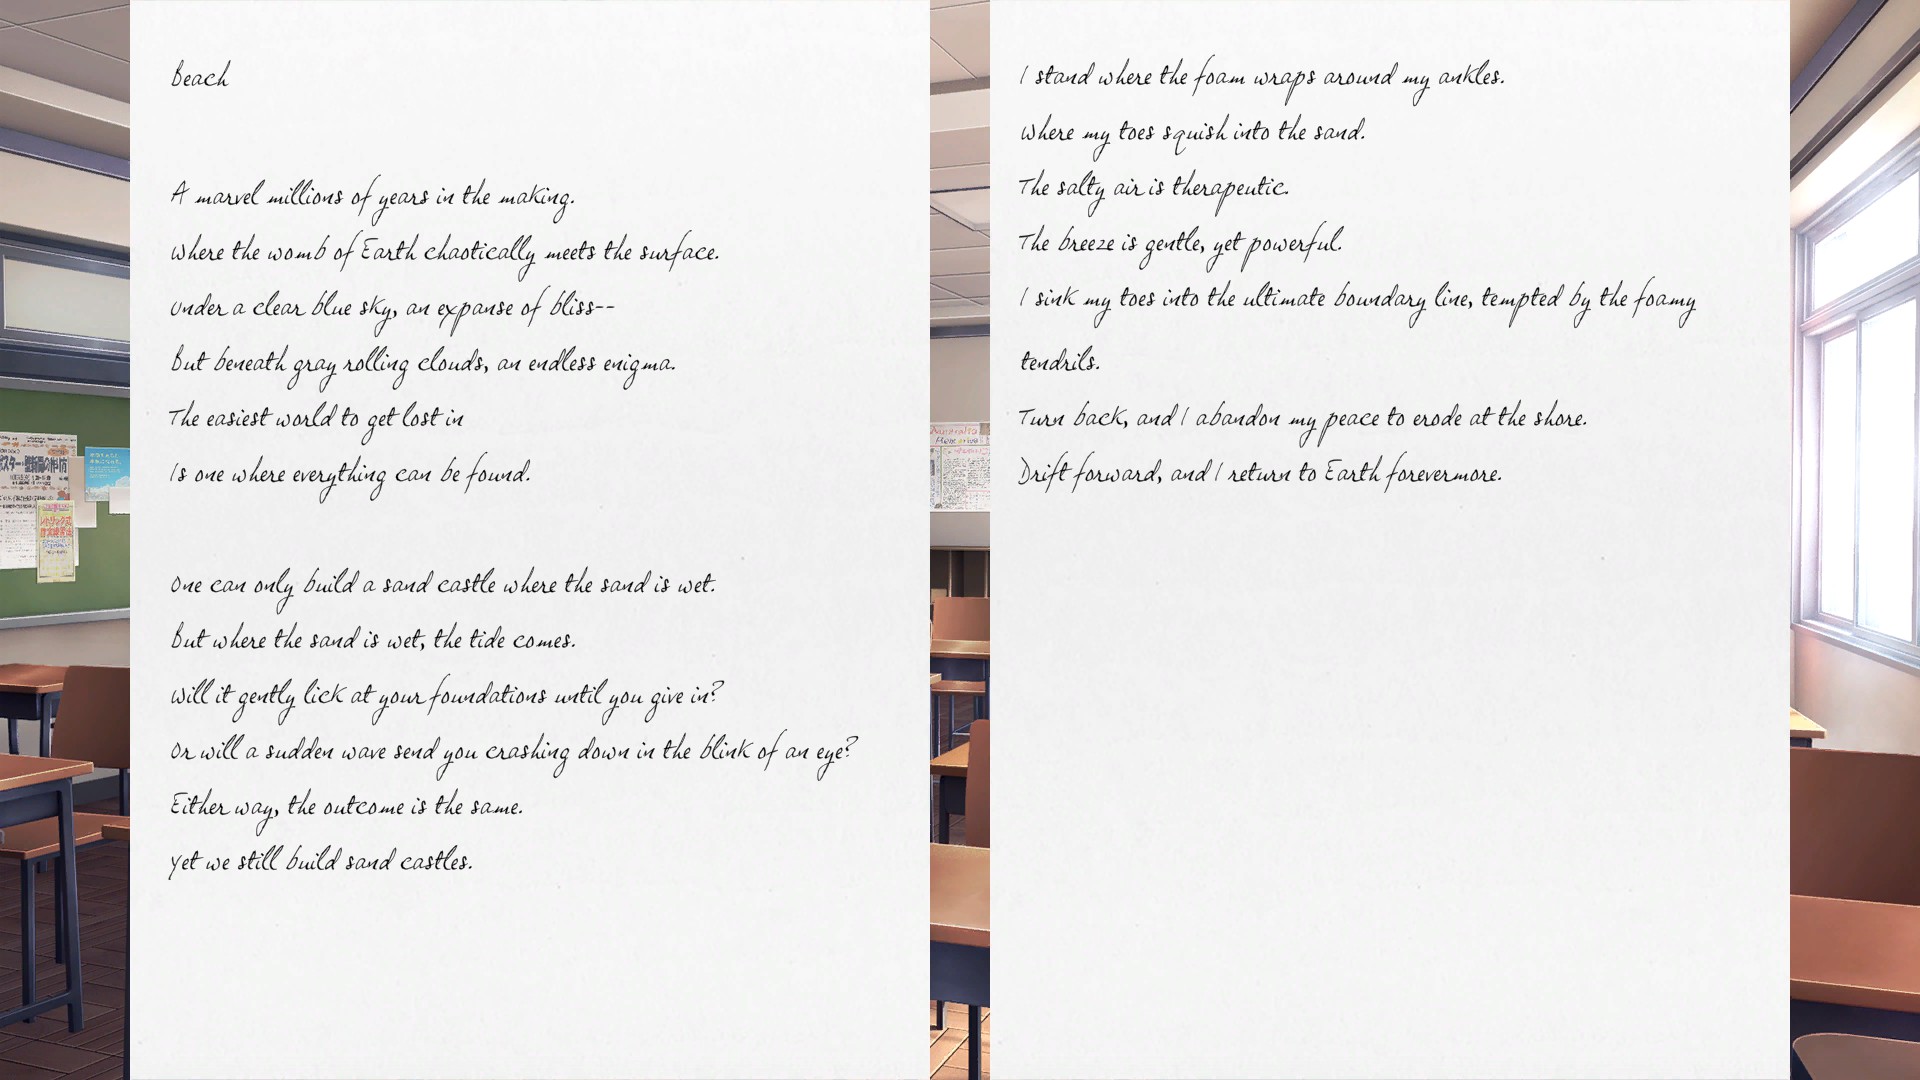 Beach
A marvel millions of years in the making.
Where the womb of Earth chaotically meets the surface.
Under a clear blue sky, an expanse of bliss--
But beneath gray rolling clouds, an endless enigma.
The easiest world to get lost in
Is one where everything can be found.
One can only build a sand castle where the sand is wet.
But where the sand is wet, the tide comes.
Will it gently lick at your foundations until you give in?
Or will a sudden wave send you crashing down in the blink of an eye?
Either way, the outcome is the same.
Yet we still build sand castles.
I stand where the foam wraps around my ankles.
Where my toes squish into the sand.
The salty air is therapeutic.
The breeze is gentle, yet powerful.
I sink my toes into the ultimate boundary line, tempted by the foamy
tendrils.
Turn back, and I abandon my peace to erode at the shore.
Drift forward, and I return to Earth forevermore.